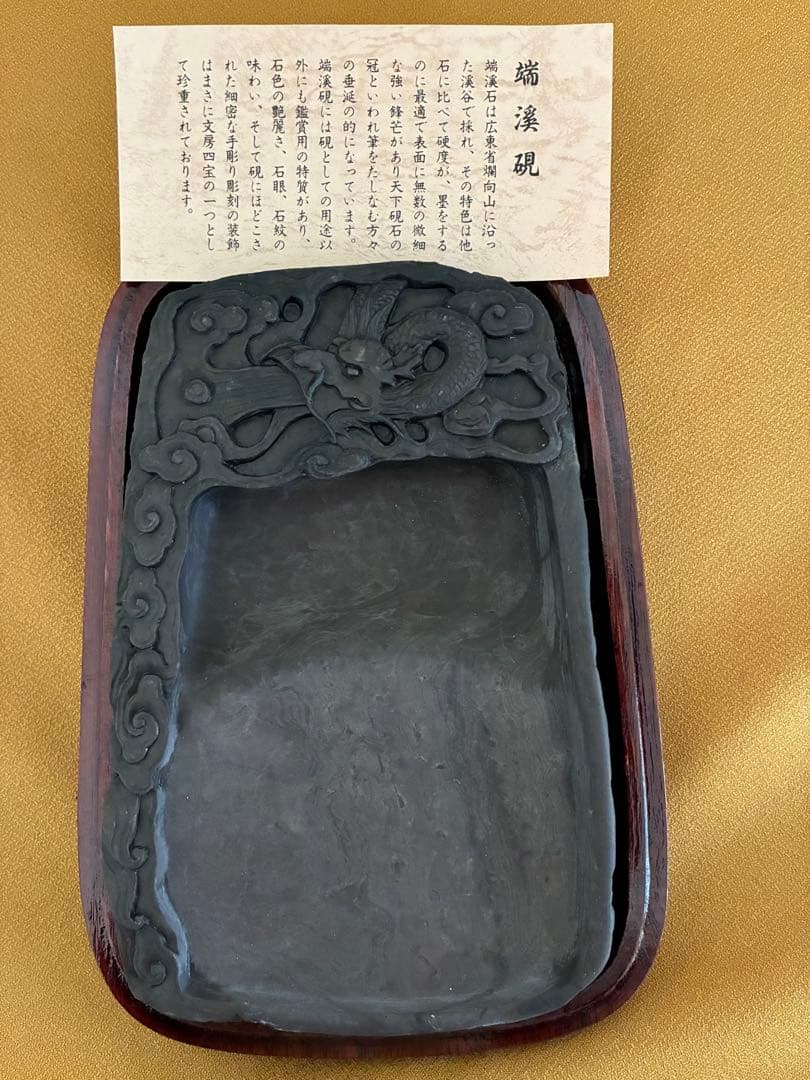 端溪硯
端溪石は広東省爛向山に沿っ
た溪谷で採れ、その特色は他
石に比べて硬度が、墨をする
のに最適で表面に無数の微細
な強い鋒芒があり天下硯石の
冠といわれ筆をたしなむ方々
の垂涎の的になっています。
端溪硯には硯としての用途以
外にも鑑賞用の特質があり、
石色の艶麗さ、石眼、石紋の
味わい、そして硯にほどこさ
れた細密な手彫り彫刻の装飾
はまさに文房四宝の一つとし
て珍重されております。